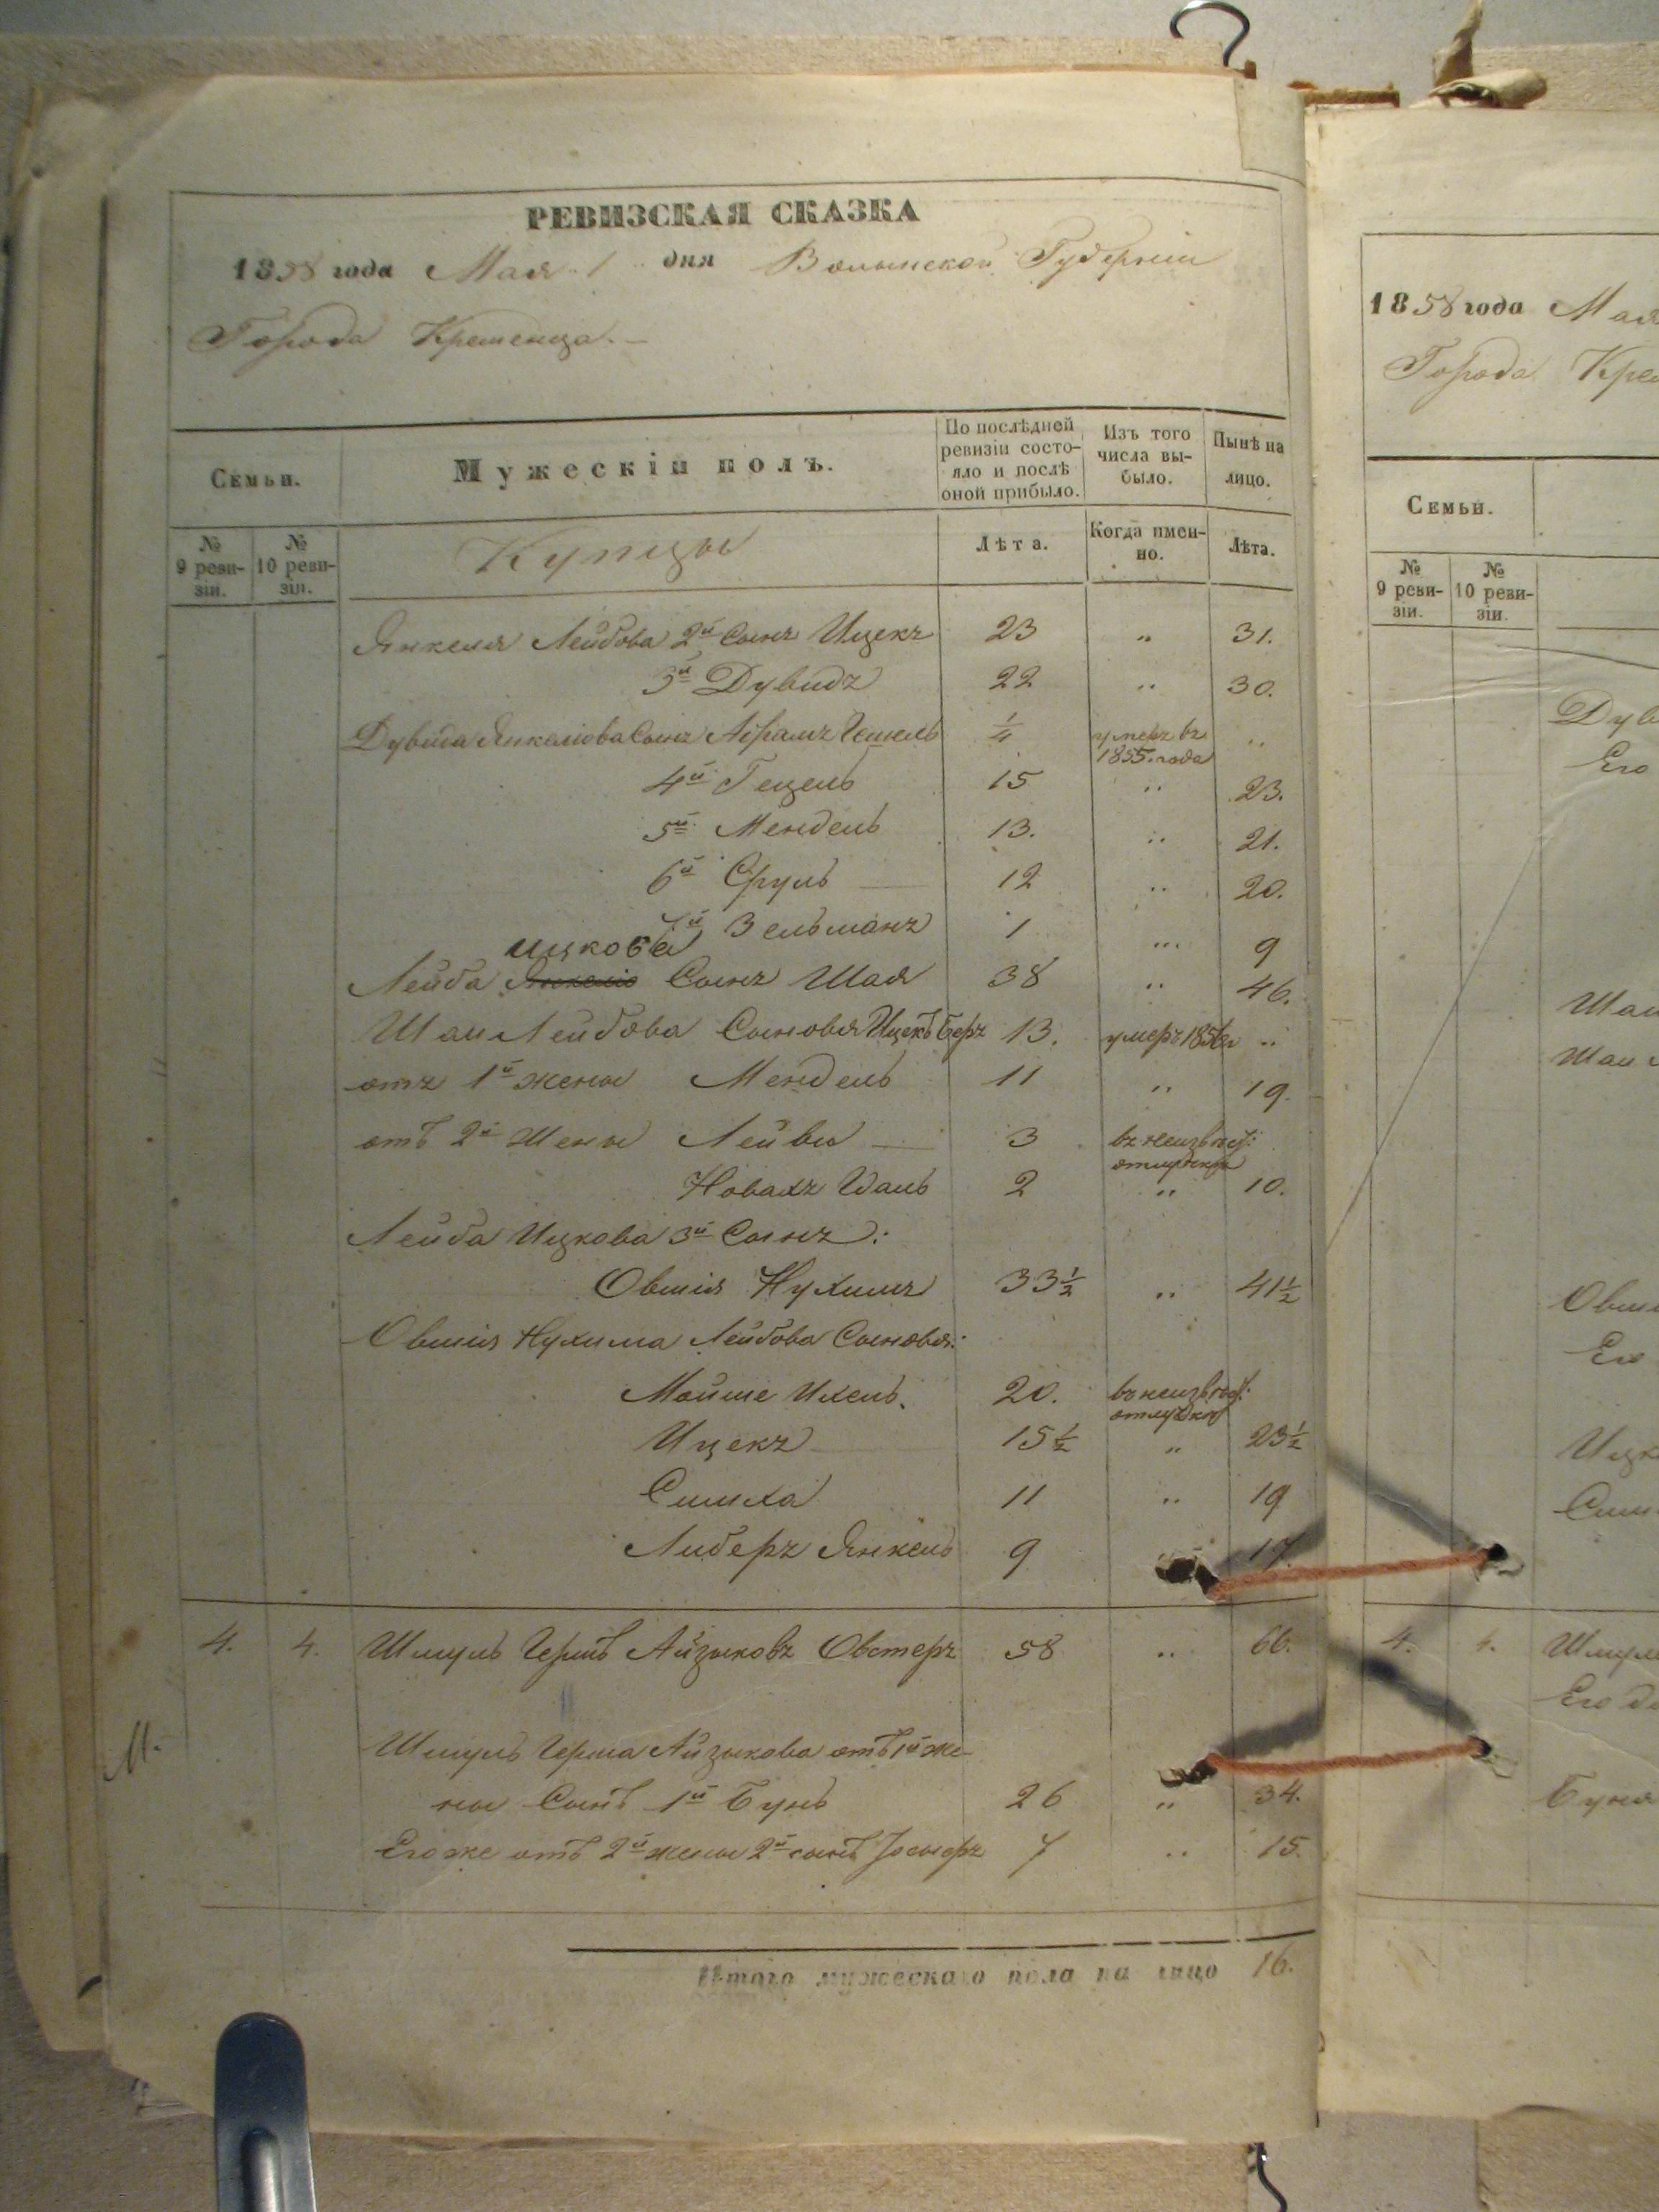 РЕВИЗСКАЯ СКАЗКА
1858 года Мая 1 дня Волынской Губерніи
Города Кременца.
Семьи.
Мужескій полъ.
По послѣдней ревизіи состояло и послѣ оной прибыло.
Изъ того числа выбыло.
Нынѣ на лицо.
№ 9 ревизіи.
№ 10 ревизіи.
Купцы
Лѣта.
Когда именно.
Лѣта.
Янкеля Лейбова 2й Сынъ Ицекъ 23 " 31.
3й Дувидъ 22 " 30.
Дувида Янкеліова Сынъ Абрамъ Гешель 1/4 умеръ въ 1855. года "
4й Гецель 15 " 23.
5й Мендель 13. " 21.
6й Сруль 12 " 20.
7й Зельманъ 1 " 9
Ицкова
Лейба Янкеліо Сынъ Шая 38 " 46.
Шаи Лейбова Сыновья Ицекъ Беръ 13. умеръ 1856г "
отъ 1й жены Мендель 11 " 19.
отъ 2й Жены Лейви 3 въ неизвѣст: отлучкѣ
Новахъ Шаль 2 " 10.
Лейба Ицкова 3й Сынъ:
Овшія Нухимъ 33 1/2 " 41 1/2
Овшія Нухима Лейбова Сыновья:
Мойше Ихель. 20. въ неизвѣст: отлучкѣ
Ицекъ 15 1/2 " 23 1/2
Симха 11 " 19
Либеръ Янкель 9 17.
4. 4. Шмуль Гершъ Айзыковъ Овстеръ 58 " 66.
Шмуль Герша Айзыкова отъ 1й же-
ны Сынъ 1й Бунь 26 " 34.
Его же отъ 2й жены 2й сынъ Іосифъ 7 " 15.
М.
Итого мужескаго пола на лицо 16.
1858 года Мая
Города Крем
Семьи.
№ 9 ревизіи.
№ 10 ревизіи.
Дув
Его
Шаи
Шаи
Овши
Его
Ицк
Сим
4. 4. Шмул
Его до
Буня